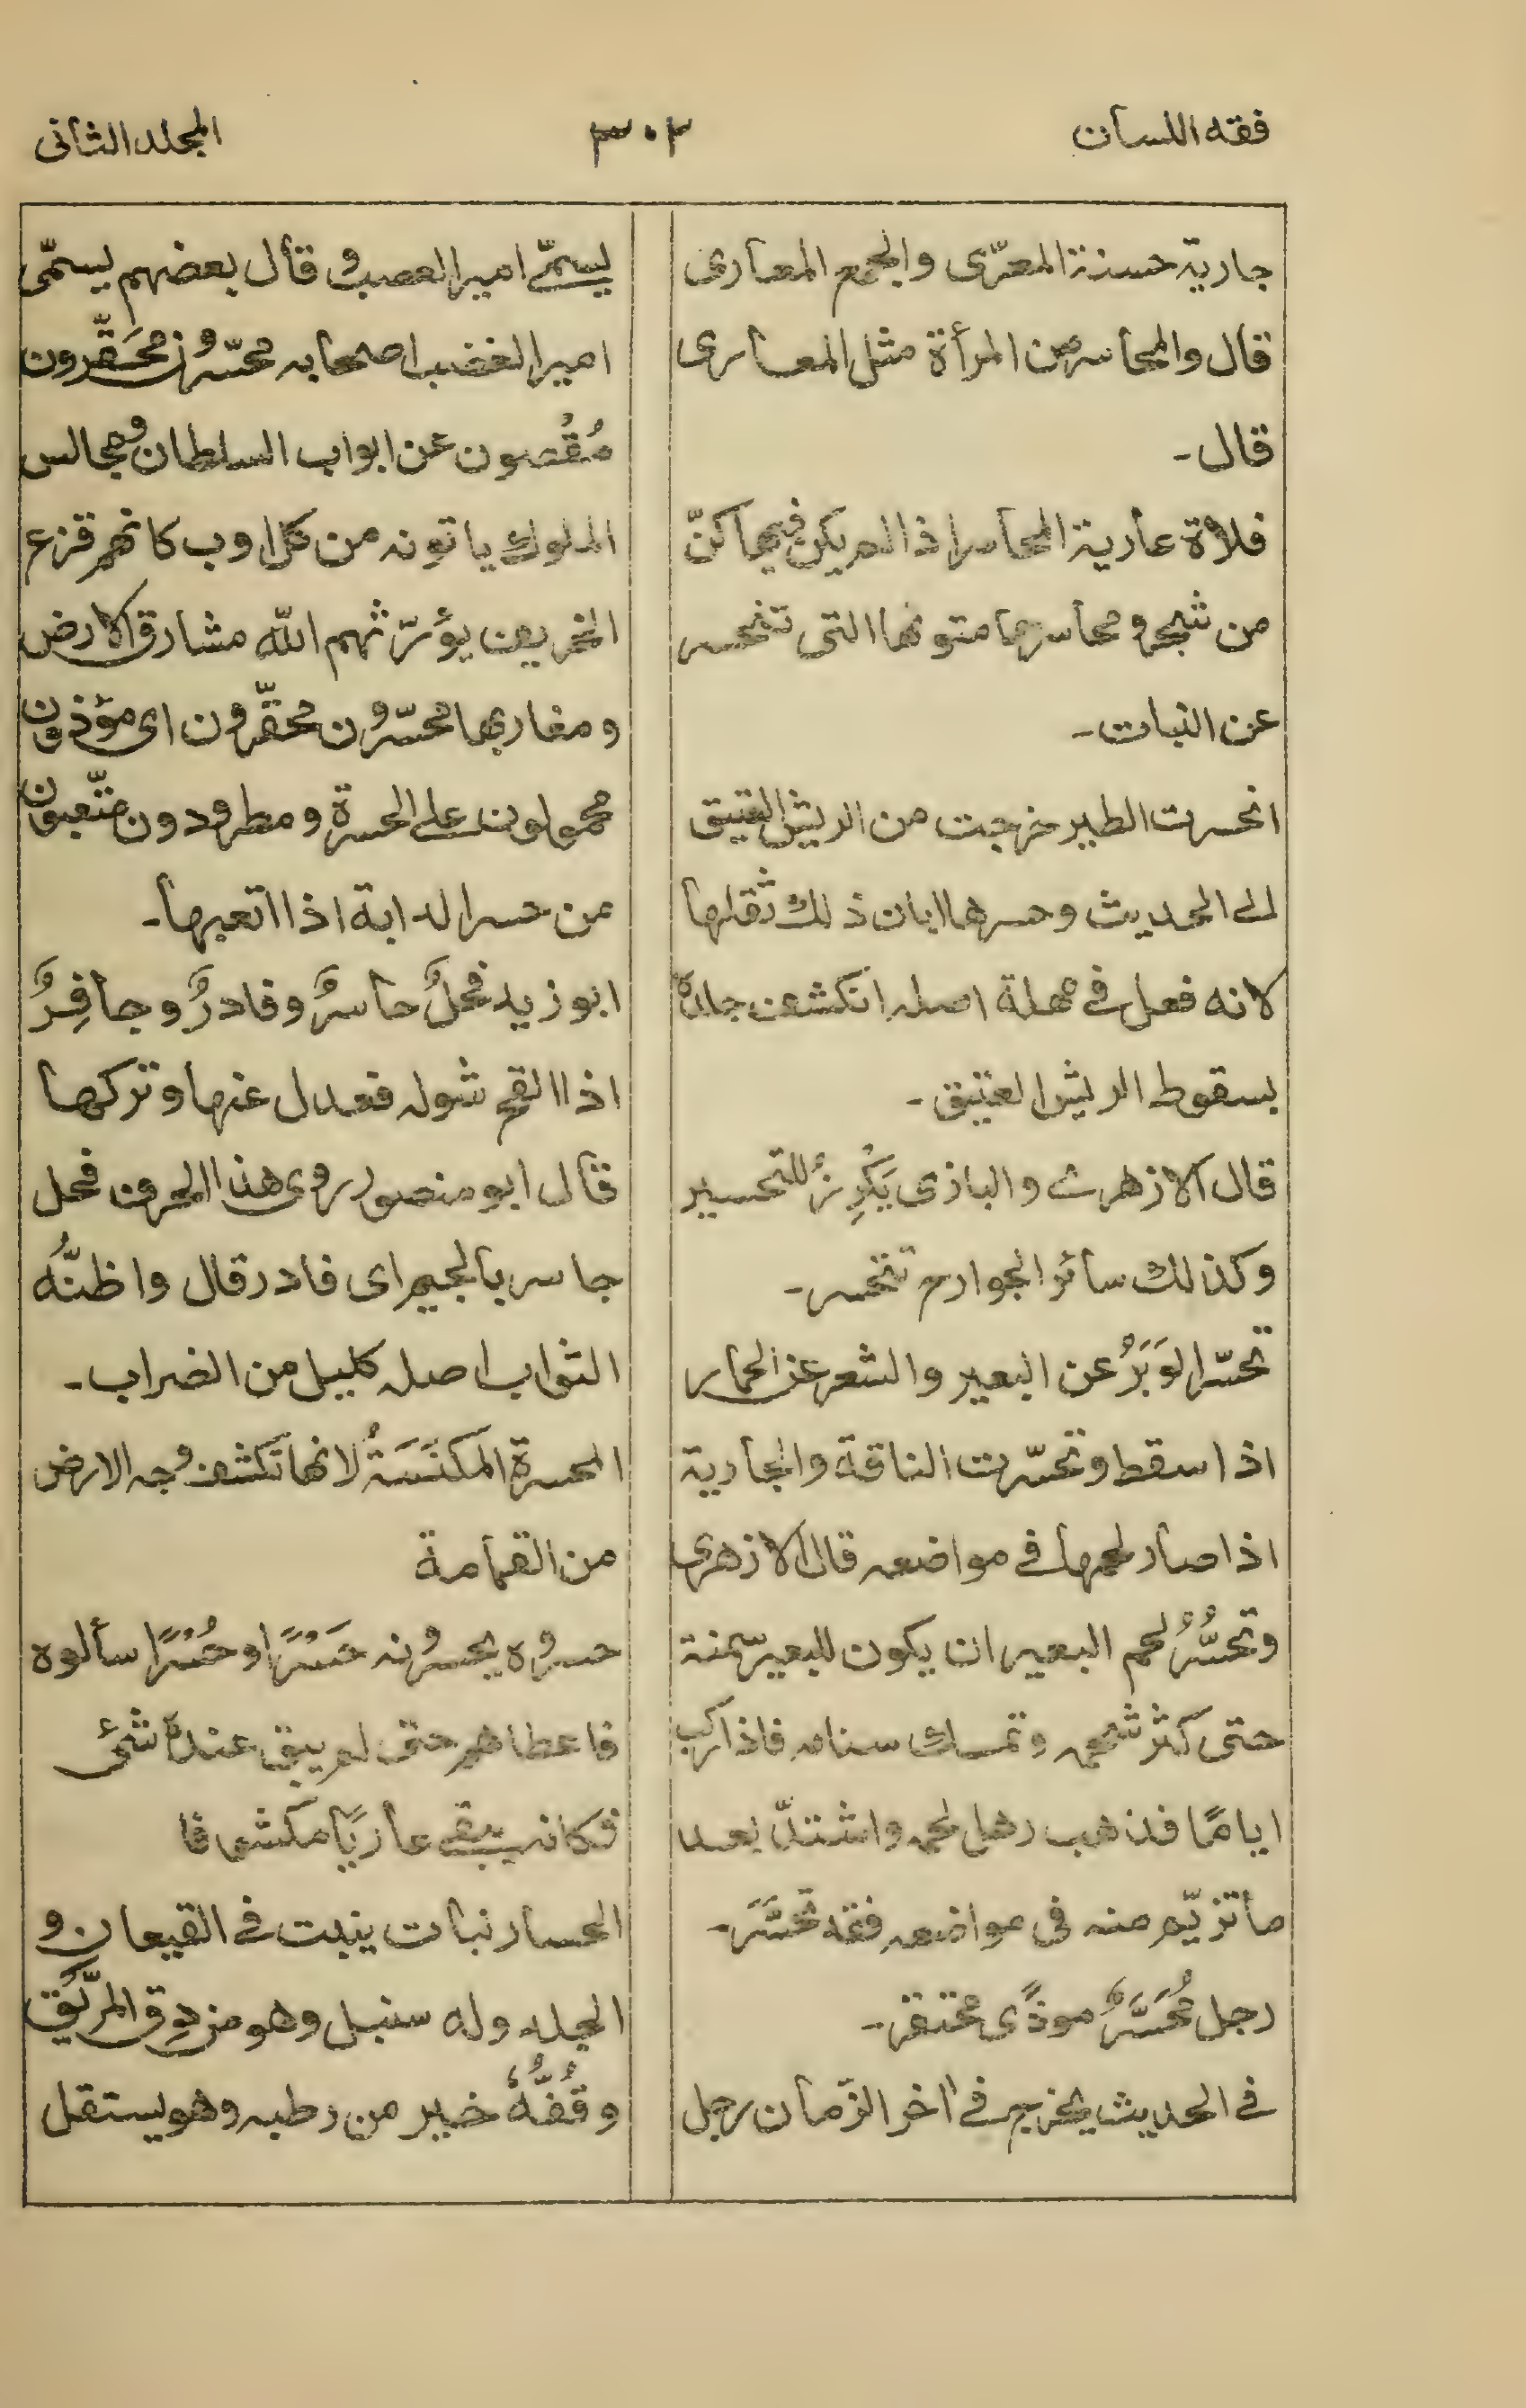 فقه اللسان
٣٠٢
المجلد الثانى
جارية حسنة المعرّى والجمع المعارى
قال والمحاسر من المرأة مثل المعارى
قال ـ
فلاة عارية المحاسر اذا لم يكن فيها كنّ
من شجر و محاسرها متونها التى تنحسر
عن النبات ـ
انحسرت الطير خرجت من الريش العتيق
الى الحديث وحسرها ابان ذلك ثقلها
لانه فعل فى مهلة اصله انكشف جلدة
بسقوط الريش العتيق ـ
قال الازهرى والباذى يَكْرِزُ للتحسير
وكذلك سائر الجوارح تنحسر ـ
تحسّر الوَبَرُ عن البعير والشعر عن الحمار
اذا سقط و تحسّرت الناقة والجارية
اذا صار لحمها فى مواضعه قال الازهرى
وتحسُّرُ لحم البعير ان يكون للبعير سمنة
حتى كثر شحمه وتمسك سنامه فاذا ركب
اياما فذهب رهل لحمه واشتدّ بعد
ما تزيّم منه فى مواضعه فقد تَحَسَّرَ ـ
رجل مُحَسَّرٌ موذًى محتقر ـ
فى الحديث يخرج فى اخر الزمان رجل
يسمّى امير العصب و قال بعضهم يسمّى
امير الغضب اصحابه محسّرون محَقَّرون
مُقْصون عن ابواب السلطان ومجالس
الملوك ياتونه من كل اوب كانهم قزع
الخريف يؤرّثهم الله مشارق الارض
ومغاربها محسّرون محقّرون اى مؤذون
محمولون على الحسرة و مطرودون متّعبون
من حسر الدابة اذا اتعبها ـ
ابو زيد فحلٌ حاسرٌ و فادرٌ و جافِرٌ
اذا القح شوله فعدل عنها و تركها
قال ابو منصور روى هذا الحرف فحل
جاسر بالجيم اى فادر قال واظنّه
الثواب اصله كليل من الضراب ـ
المحسرة المكنَسَةُ لانها تكشف وجه الارض
من القمامة
حسروه يحسرونه حَسْرًا و حُسْرًا سألوه
فاعطاهم حتى لم يبق عندة شئ
فكانه يبقى عاريًا مكشوفا
الحسار نبات ينبت فى القيعان و
الجلد وله سنبل وهو من دِق المرّيق
وقُفُّهُ خير من رطبه وهو يستقل